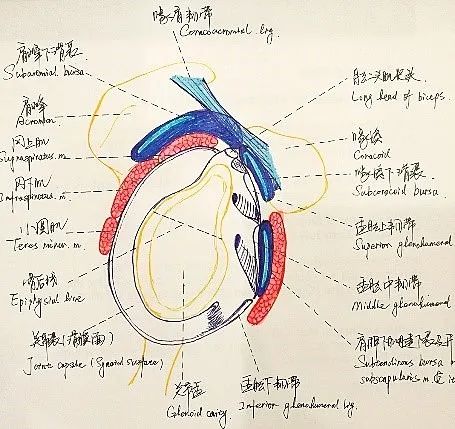 喙肩韧带
Coracoacromial lig.
肩峰下滑囊
Subacromial bursa
肩峰
Acromion
冈上肌
Supraspinatus. m.
冈下肌
Infraspinatus. m
小圆肌
Teres minor. m
骨骺线
Epiphysial line
关节囊(滑膜面)
Joint capsule (Synovial surface)
关节盂
Glenoid cavity.
盂肱下韧带
Inferior glenohumeral lig.
肱二头肌长头
Long head of biceps.
喙突
Coracoid
喙突下滑囊
Subcoracoid bursa
盂肱上韧带
Superior glenohumeral
盂肱中韧带
Middle glenohumeral
肩胛下肌腱下囊及开
Subtendinous bursa
subscapularis m.